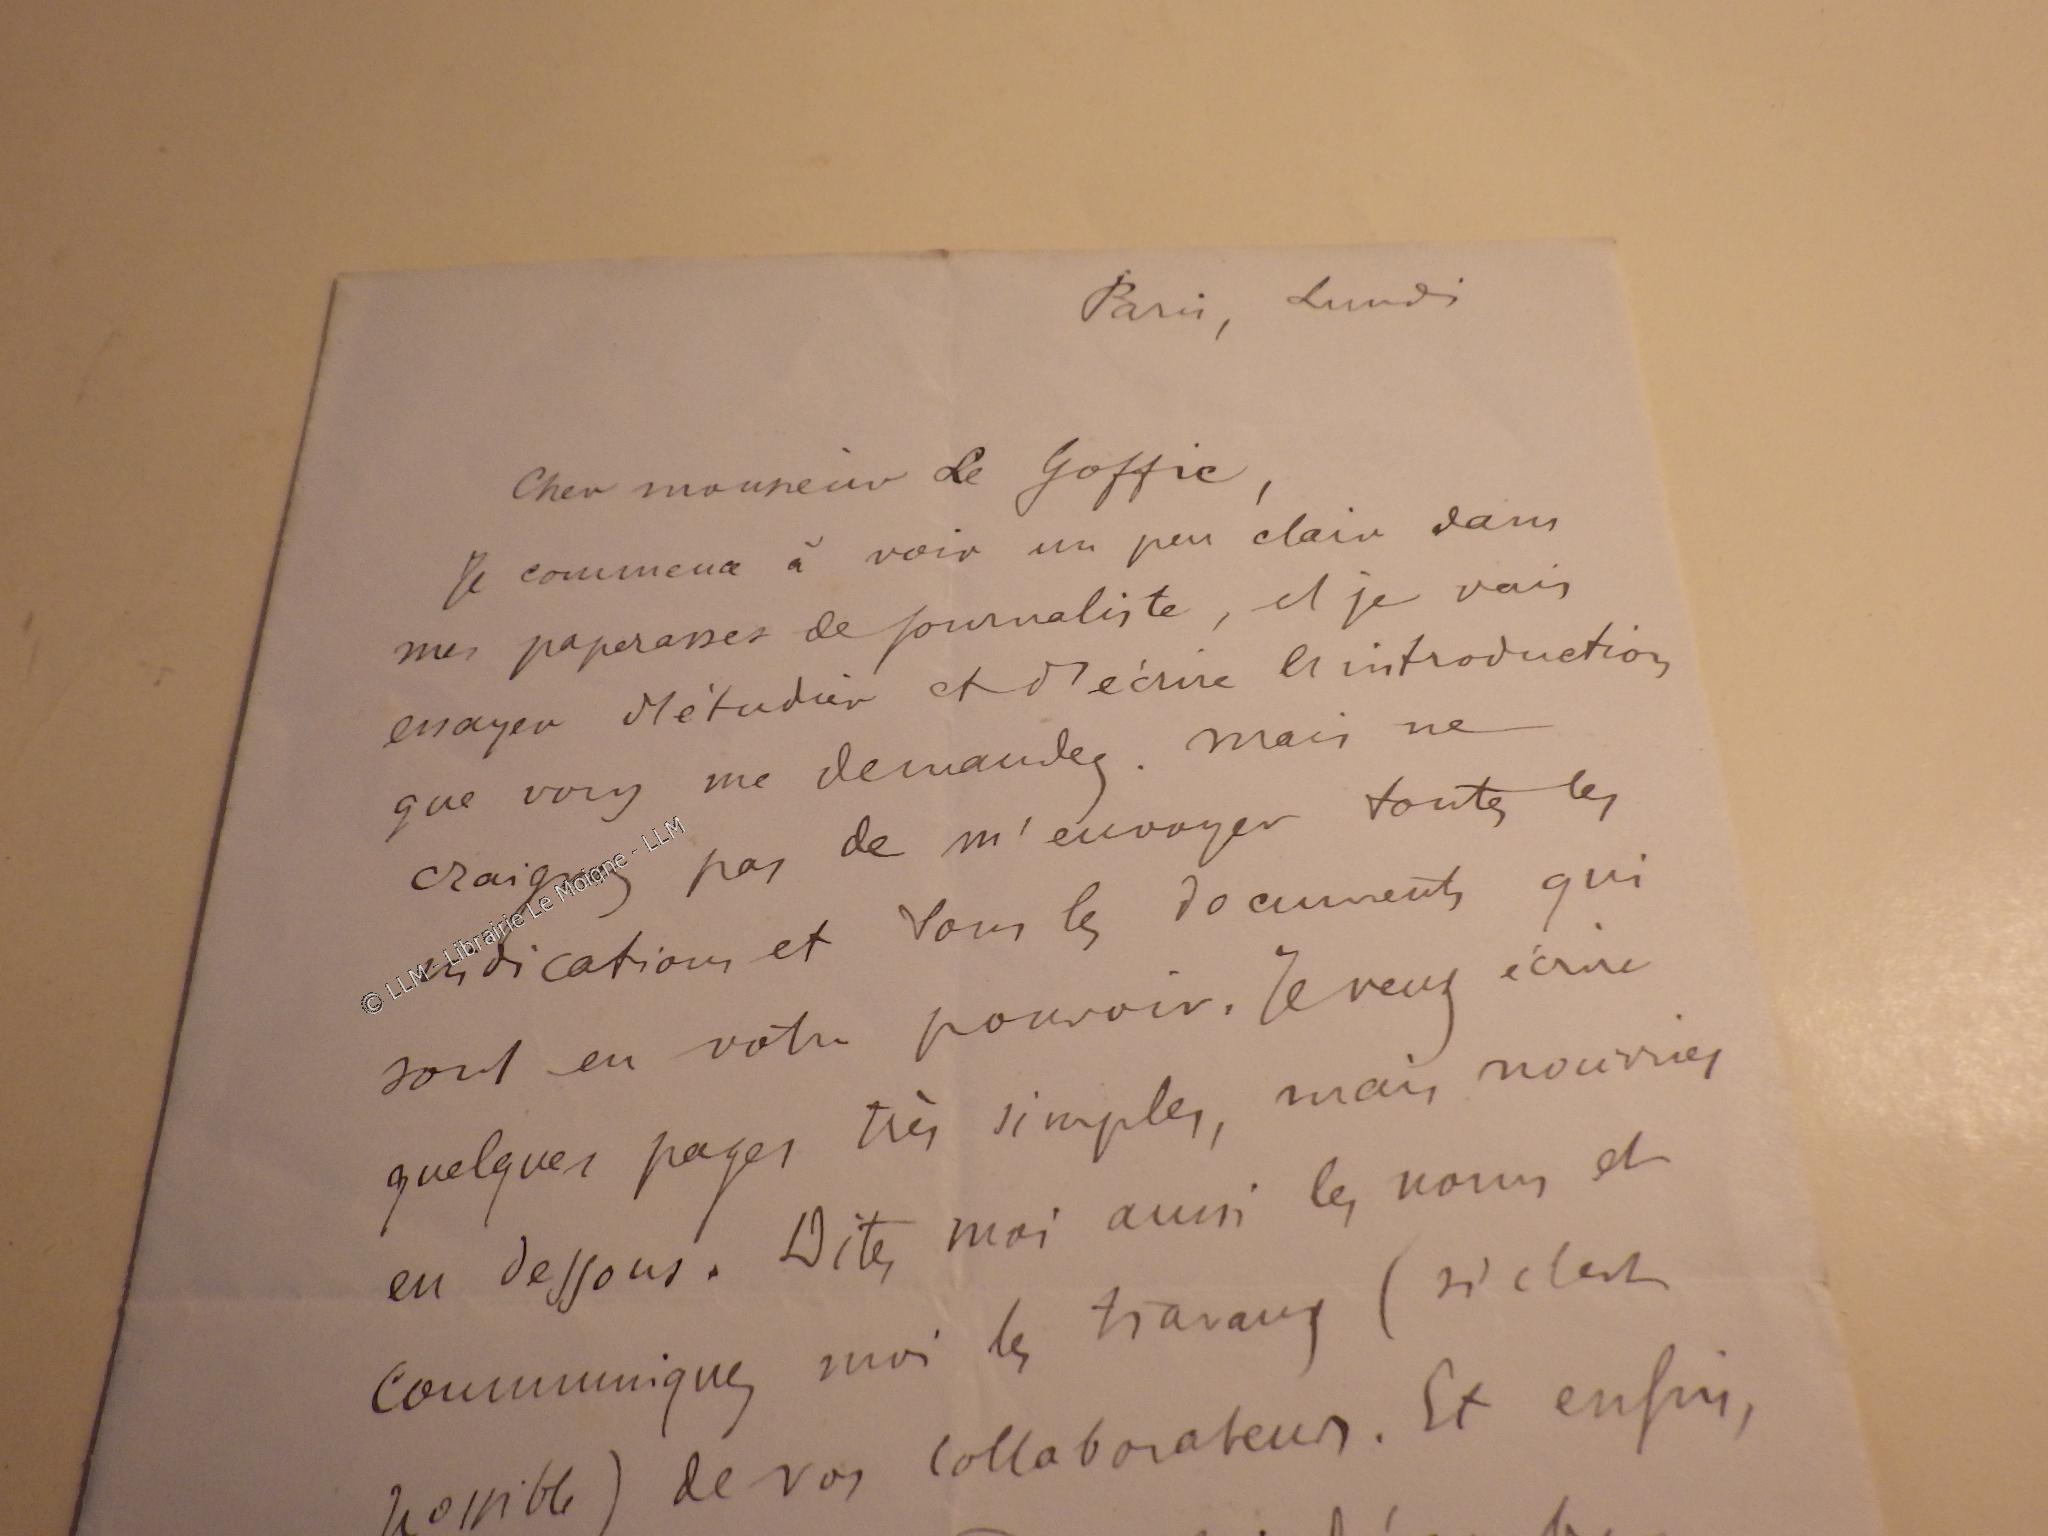 Paris, Lundi
Cher monsieur Le Goffic,
Je commence à voir un peu clair dans
mes paperasses de journaliste, et je vais
essayer d'étudier et d'écrire l'introduction
que vous me demandez. Mais ne
craignez pas de m'envoyer toutes les
indications et tous les documents qui
sont en votre pouvoir. Je veux écrire
quelques pages très simples, mais nourries
en dessous. Dites moi aussi les noms et
communiquez moi les travaux (si c'est
possible) de vos collaborateurs. Et enfin,
© LLM - Librairie Le Moigne - LLM